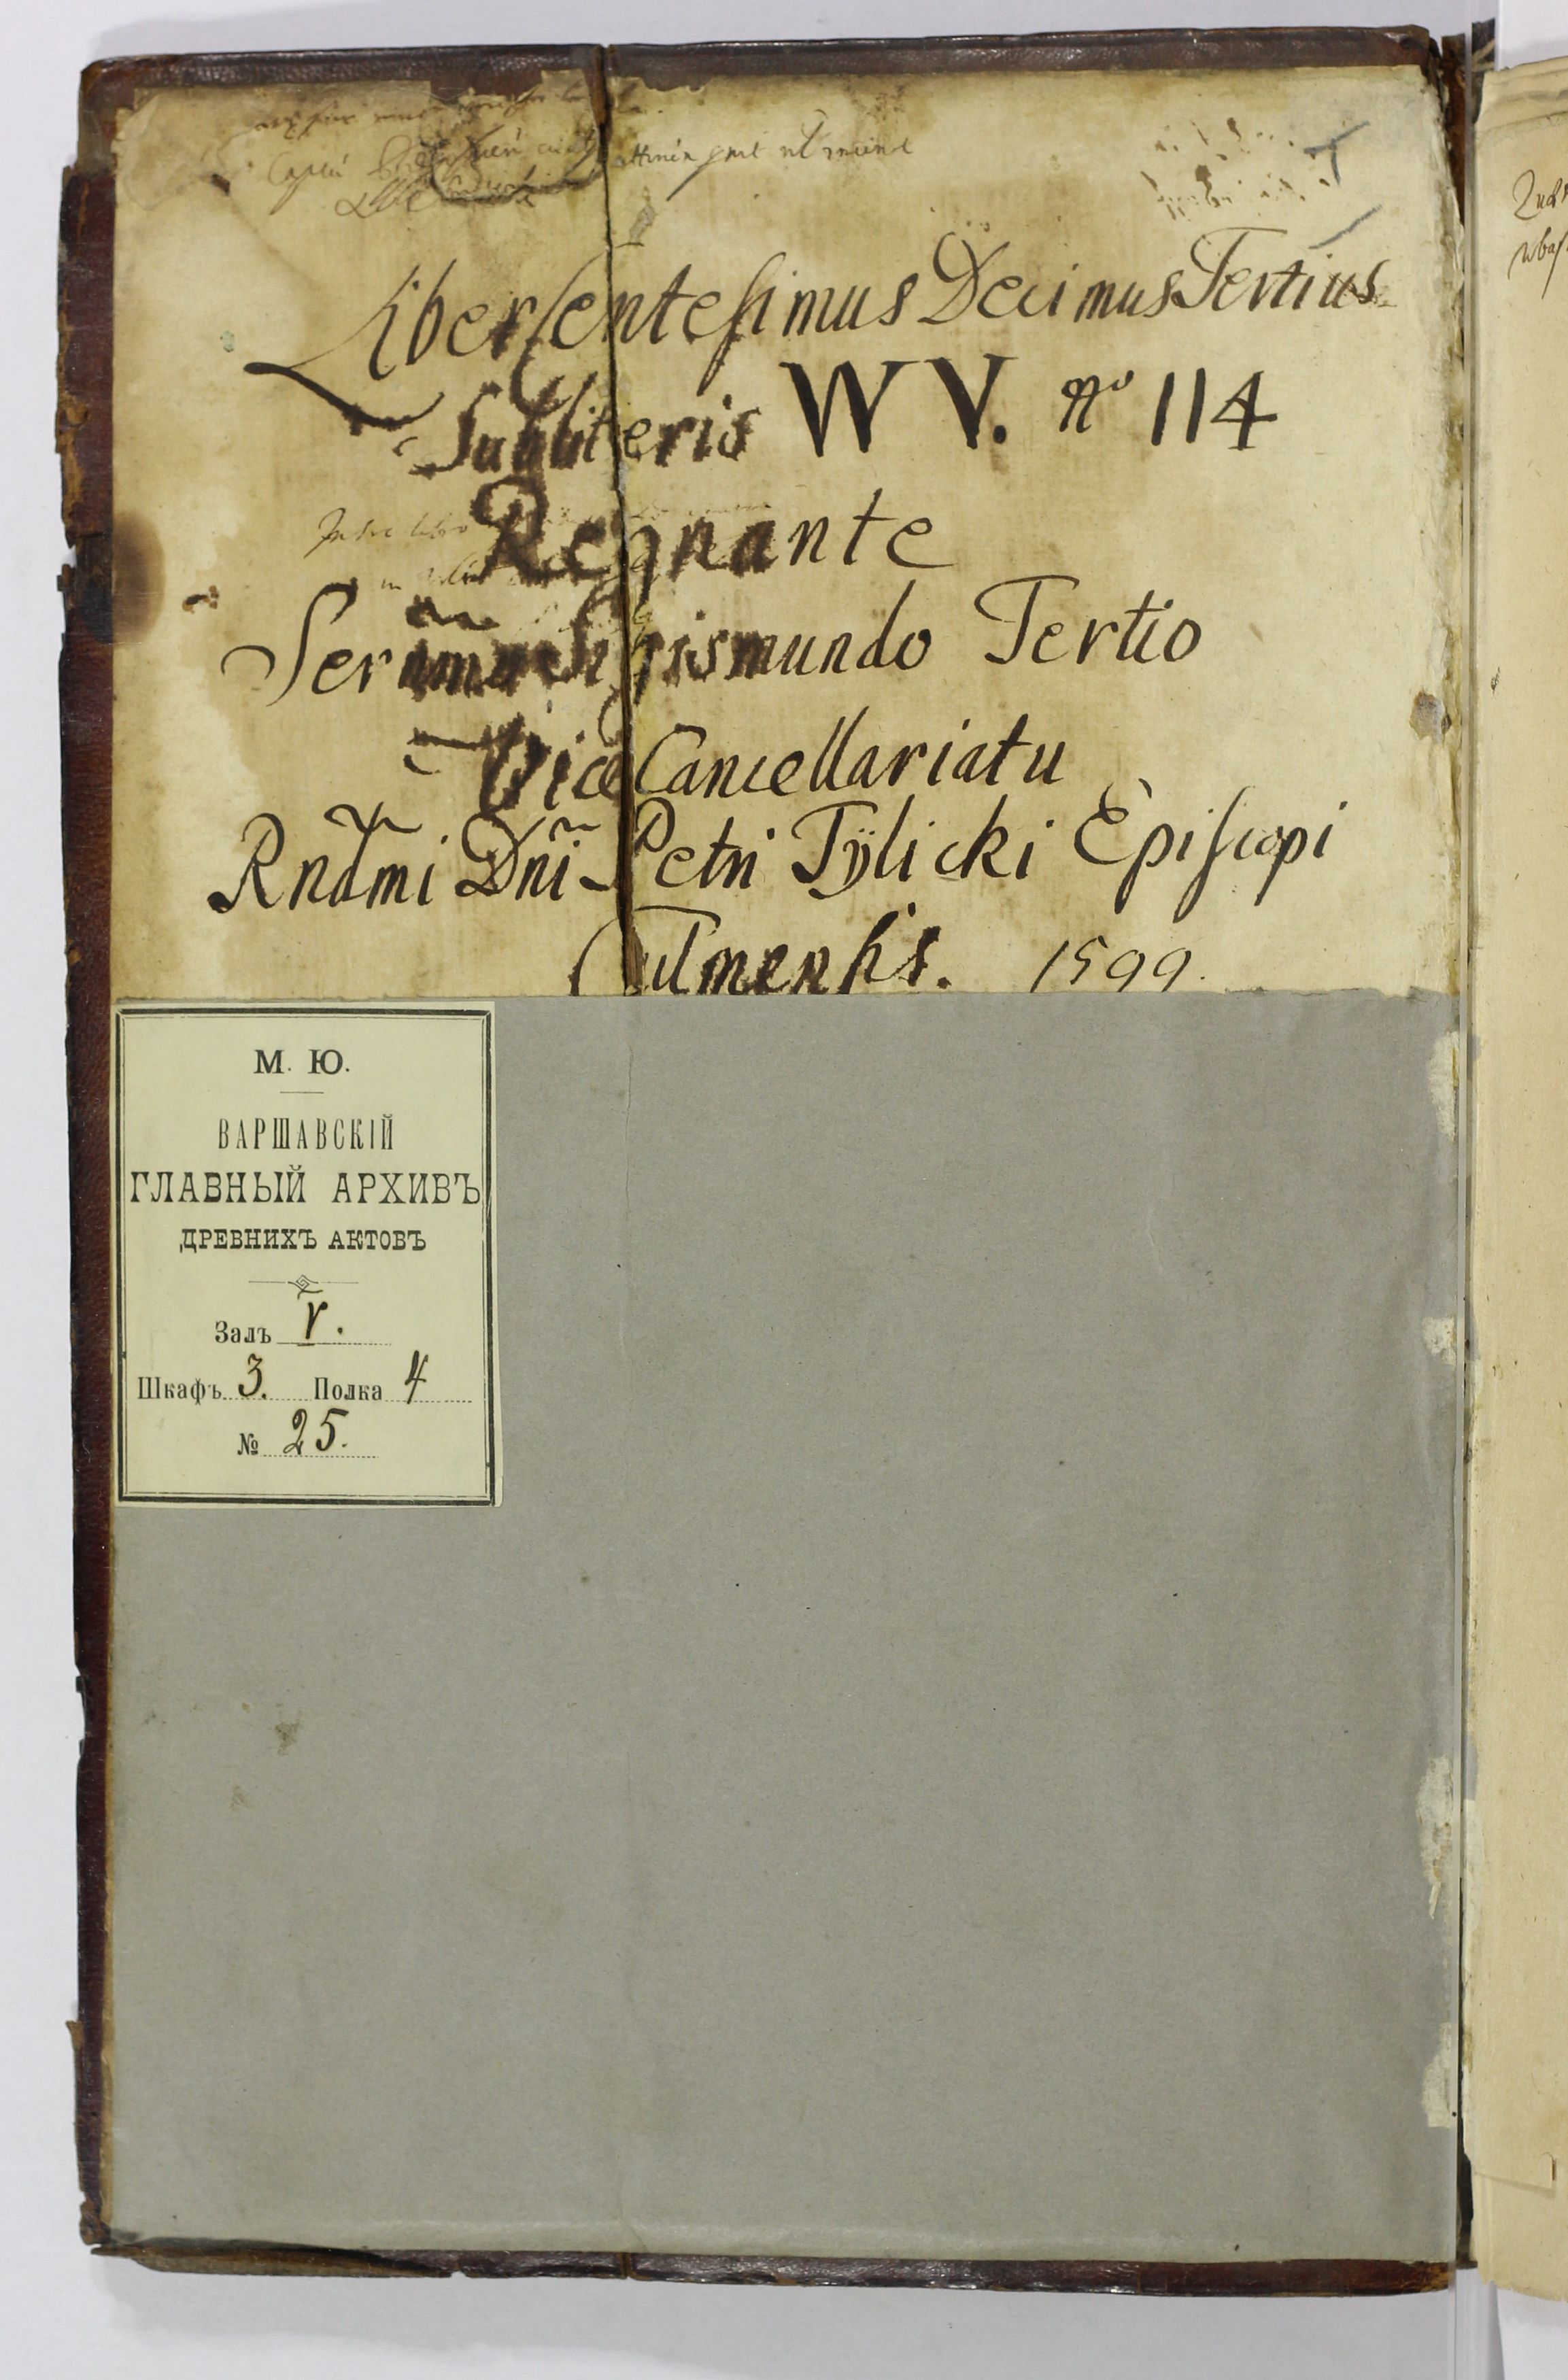 Liber Centesimus Decimus Tertius
Sub literis W V. No 114
Regnante
Sermo Sigismundo Tertio
Vice Cancellariatu
Rndmi Dni Petri Tÿlicki Episcopi
Culmensis. 1599.
М. Ю.
ВАРШАВСКІЙ
ГЛАВНЫЙ АРХИВЪ
ДРЕВНИХЪ АКТОВЪ
Залъ V.
Шкафъ 3. Полка 4
№ 25.